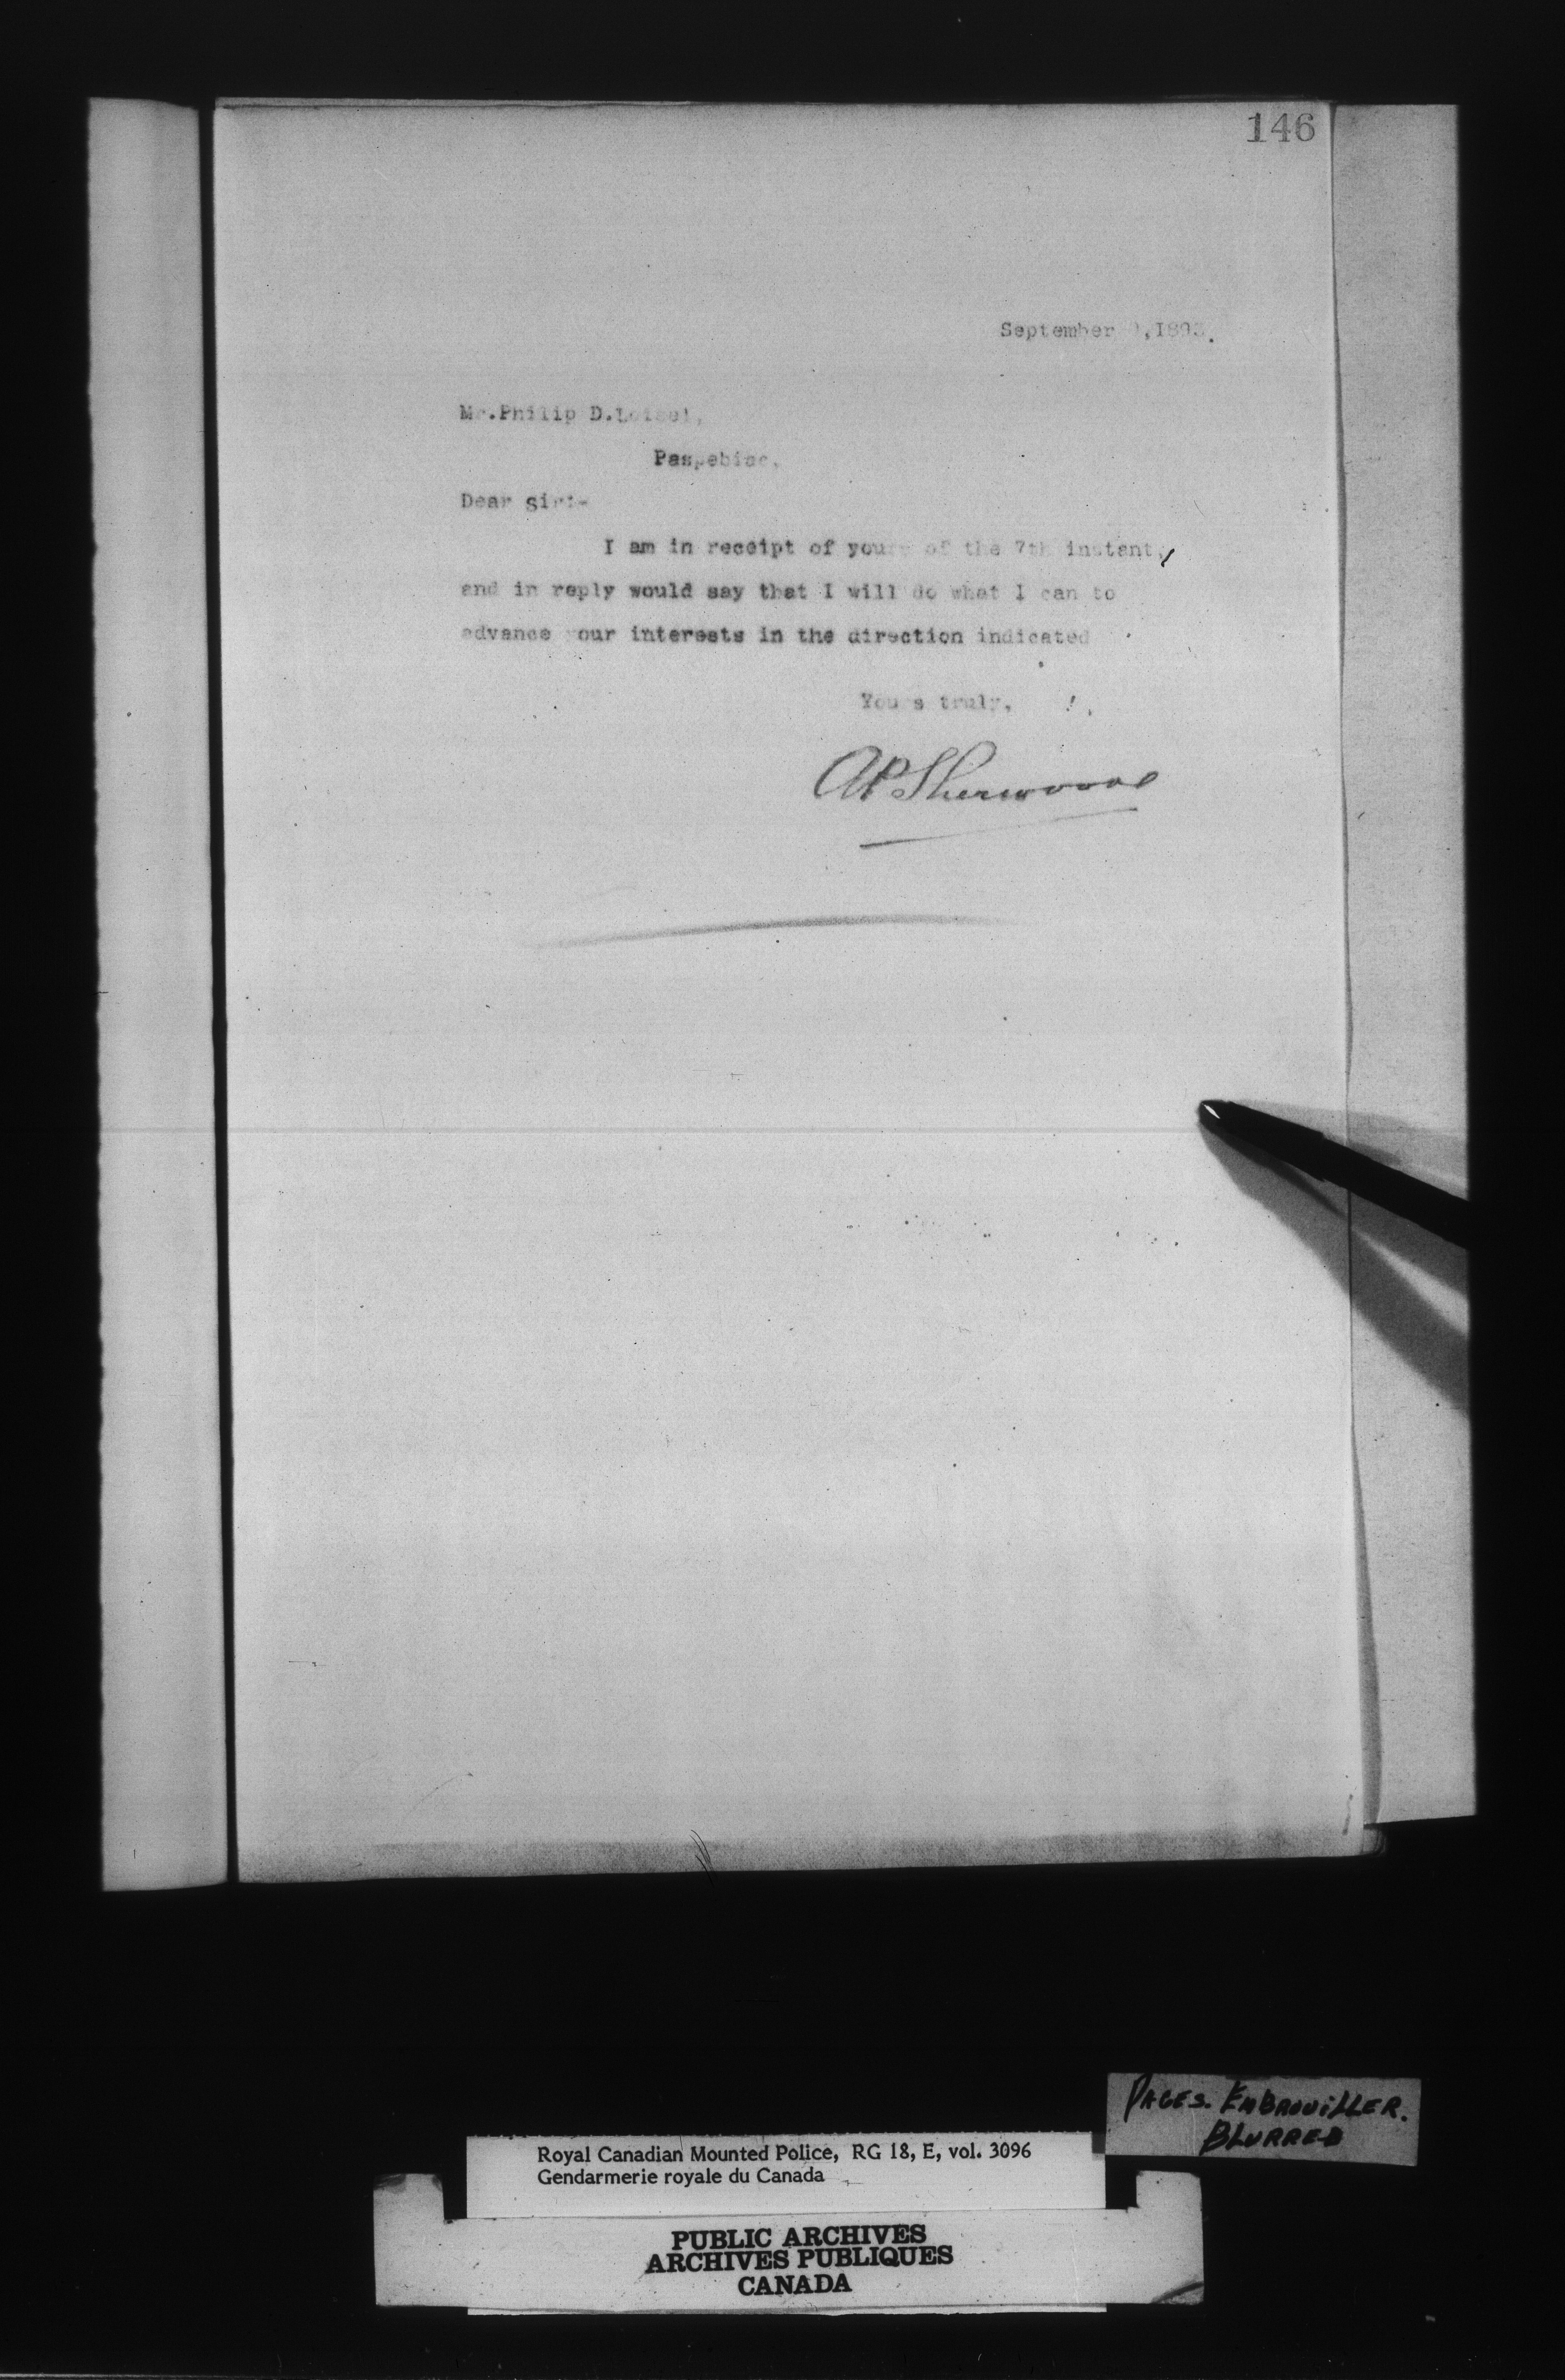 146
September 9, 1893.
Mr. Philip D. Loisel,
Paspebiac.
Dear Sir:-
I am in receipt of yours of the 7th instant,
and in reply would say that I will do what I can to
advance your interests in the direction indicated
Yours truly,
AP Sherwood
PAGES. EMBROUILLER.
BLURRED
Royal Canadian Mounted Police, RG 18, E, vol. 3096
Gendarmerie royale du Canada
PUBLIC ARCHIVES
ARCHIVES PUBLIQUES
CANADA